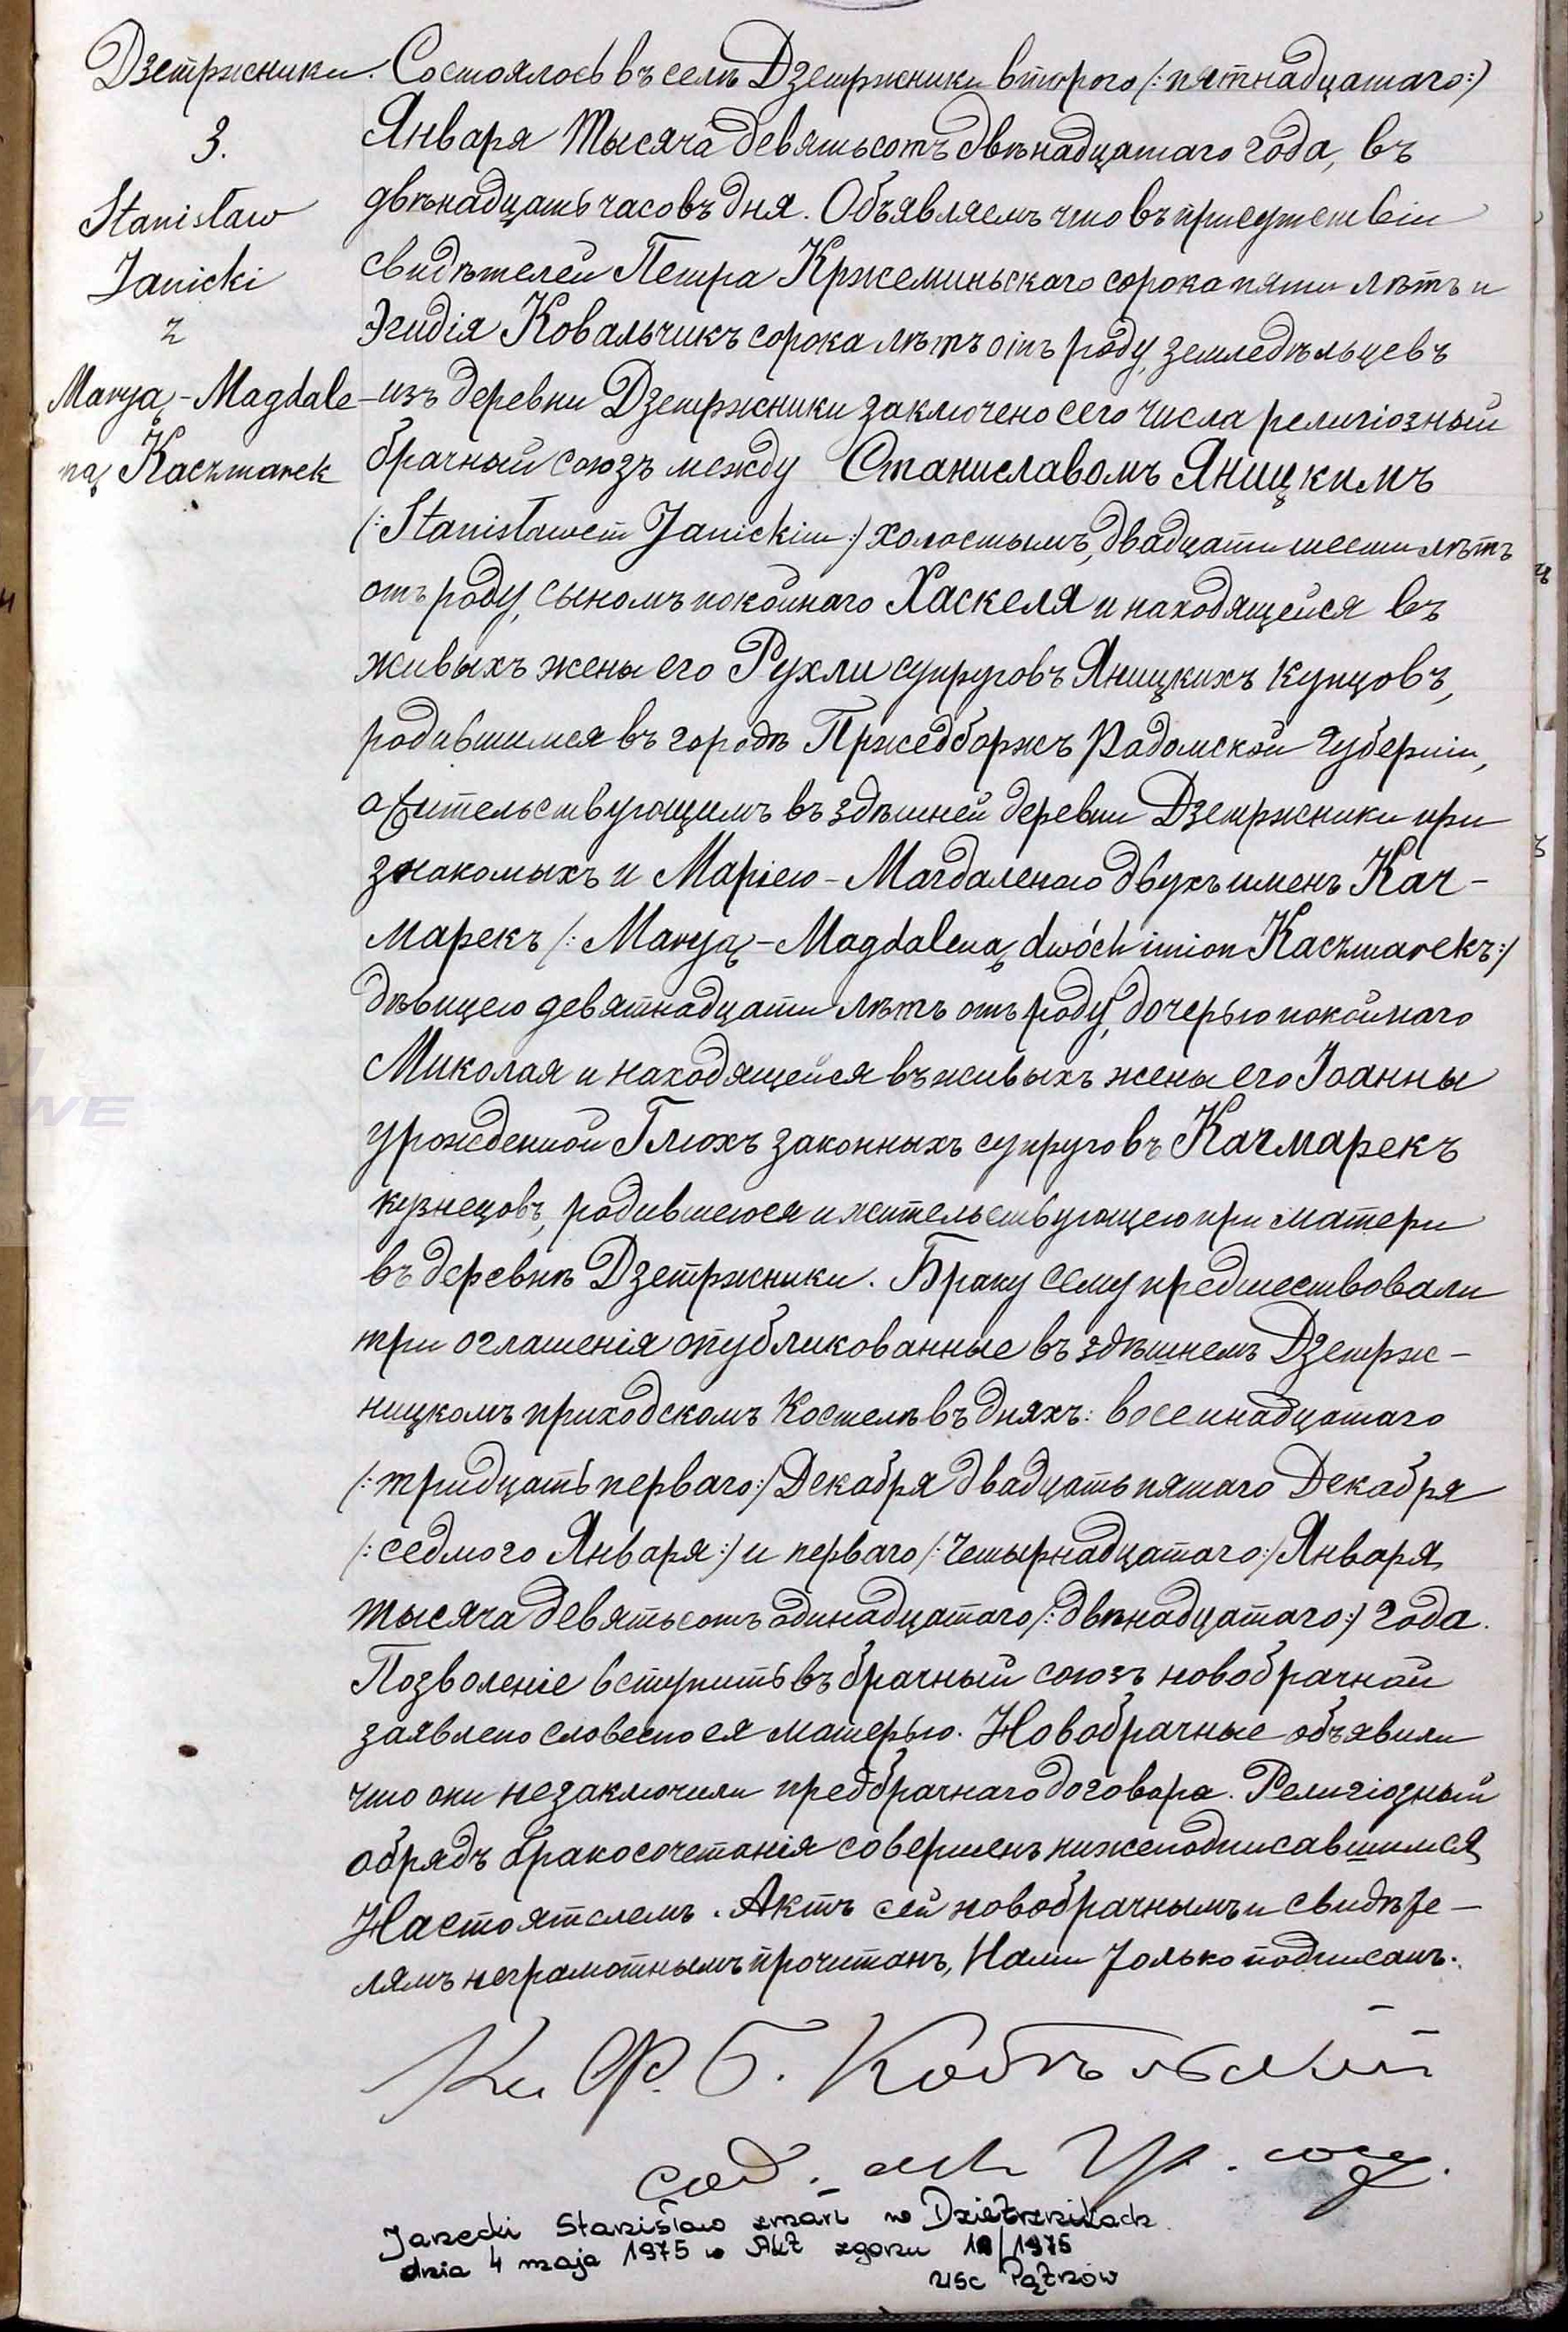 Дзетржсники.
3.
Stanisław
Janicki
z
Maryą-Magdale-
ną Kaczmarek
Состоялось въ селѣ Дзетржники второго /:пятнадцатаго:/
Января тысяча девятьсотъ двѣнадцатаго года, въ
двѣнадцать часовъ дня. Объявляемъ что въ присутствіи
свидѣтелей Петра Кржеминьскаго сорока пяти лѣтъ и
Эгидія Ковальчикъ сорока лѣтъ отъ роду, земледѣльцевъ
изъ деревни Дзетржники заключено сего числа религіозный
брачный союзъ между Станиславомъ Яницкимъ
/:Stanisławem Janickim:/ холостымъ, двадцати шести лѣтъ
отъ роду, сыномъ покойнаго Хаскеля и находящейся въ
живыхъ жены его Рухли супруговъ Яницкихъ купцовъ,
родившимся въ городѣ Пржедборжъ Радомской Губерніи,
а жительствующимъ въ здѣшней деревни Дзетржники при
знакомыхъ и Маріею-Магдаленою двухъ именъ Кач-
марекъ /:Maryą-Magdaleną dwóch imion Kaczmarekъ:/
дѣвицею девятнадцати лѣтъ отъ роду, дочерью покойнаго
Миколая и находящейся въ живыхъ жены его Іоанны
урожденной Глюхъ законныхъ супруговъ Качмарекъ
кузнецовъ, родившеюся и жительствующею при матери
въ деревнѣ Дзетржники. Браку сему предшествовали
три оглашенія опубликованные въ здѣшнемъ Дзетрж-
ницкомъ приходскомъ Костелѣ въ дняхъ: восемнадцатаго
/:тридцать перваго:/ Декабря двадцать пятаго Декабря
/:седмого Января:/ и перваго /:четырнадцатаго:/ Января
тысяча девятьсотъ одинадцатаго /:двѣнадцатаго:/ года.
Позволеніе вступить въ брачный союзъ новобрачной
заявлено словесно ея матерью. Новобрачные объявили
что они незаключили предбрачнаго договора. Религіозный
обрядъ бракосочетанія совершенъ нижеподписавшимся
Настоятелемъ. Актъ сей новобрачнымъ и свидѣте-
лямъ неграмотнымъ прочитанъ, Нами только подписанъ.
Кс. Ф. Б.
сод. акт. Гр. сост.
Janecki Stanisław zmarł w Dzietrznikach
dnia 4 maja 1975 w Akt zgonu 10/1975
USC Pątnów